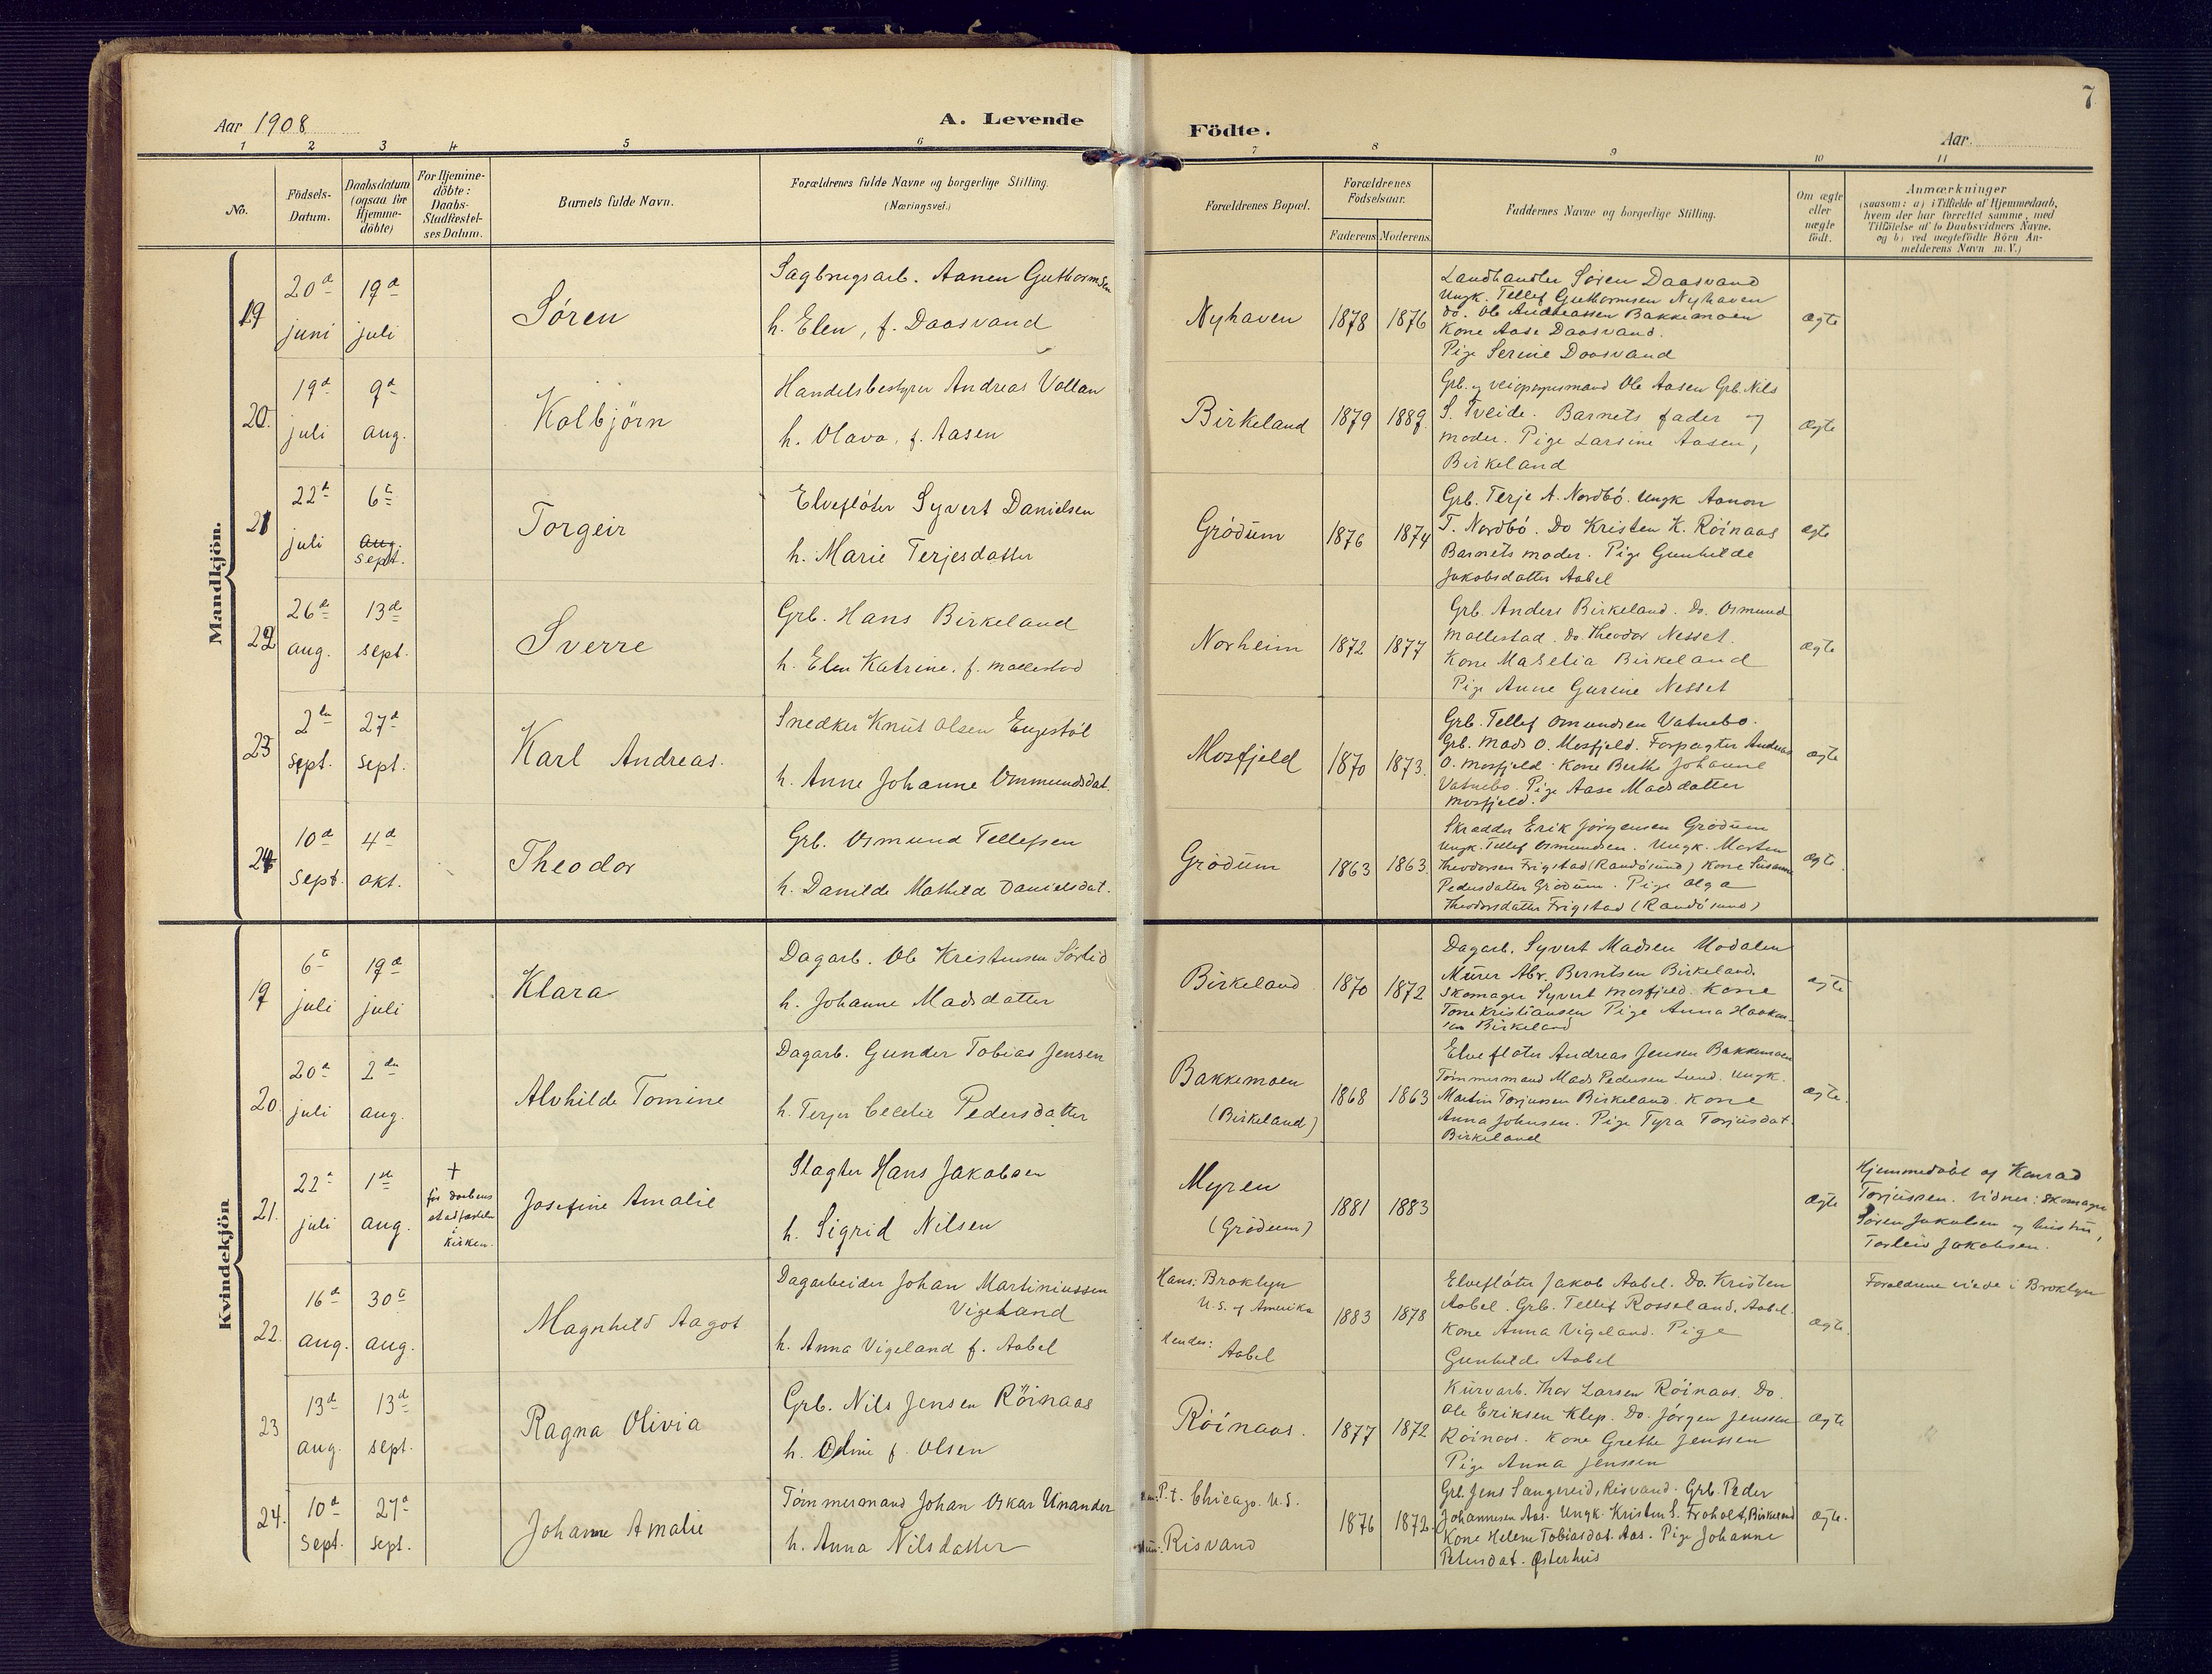 7
Aar 1908
A. Levende
Födte.
Aar
1 2 3 4 5 6 7 8 9 10 11
No.
Födsels-
Datum.
Daabsdatum
(ogsaa for
Hjemme-
döbte)
For Hjemme-
döbte:
Daabs-
Stadfæstel-
ses Datum.
Barnets fulde Navn.
Forældrenes fulde Navne og borgerlige Stilling.
(Næringsvei.)
Forældrenes Bopæl.
Forældrenes
Födselsaar.
Faderens Moderens
Faddernes Navne og borgerlige Stilling.
Om ægte
eller
uægte
født.
Anmærkninger
(saasom: a) i Tilfælde af Hjemmedaab,
hvem der har forrettet samme, med
Tilföielse af to Daabsvidners Navne.
og b) ved uægtefödte Börn An-
melderens Navn m. V.)
Mandkjön.
19
20d juni
19d juli
Sören
Sagbrugsarb. Aanen Guthormsen
h. Elen, f. Daasvand
Nyhaven
1878 1876
Landhandler Sören Daasvand
Ungk. Tellef Guthormsen Nyhaven
do. Ole Andreassen Bakkemoen
Kone Aase Daasvand.
Pige Serine Daasvand
ægte
20.
19d juli
9d aug.
Kolbjörn
Handelsbestyrer Andreas Vollan
h. Olava, f. Aasen
Birkeland
1879 1889
Grb. og Ole Aasen Grb. Nils
S. Tveide. Barnets fader og
moder. Pige Larsine Aasen,
Birkeland
ægte
21
22d juli
6te aug. sept.
Torgeir
Elveflöter Syvert Danielsen
h. Marie Terjesdatter
Grödum
1876 1874
Grb. Terje A. Nordbö. Ungk Aanon
T. Nordbö. Do Kristen K. Röinaas
Barnets moder. Pige Gunhilde
Jakobsdatter Aabel
ægte
22
26de aug.
13de sept.
Sverre
Grb. Hans Birkeland
h. Elen Katrine. f. Mollestad
Norheim
1872 1877
Grb. Anders Birkeland. Do. Osmund
Mollestad. Do. Theodor Nesset.
Kone Maselia Birkeland
Pige Anne Gurine Nesset
ægte
23
2den sept.
27d sept.
Karl Andreas.
Snedker Knut Olsen Engestöl
h. Anne Johanne Ommundsdat.
Mosfjeld
1870 1873.
Grb. Tellef Omundsen Vatnebo.
Grb. Mads O. Mosfjeld. Forpagter Andreas
O. Mosfjeld. Kone Berthe Johanne
Vatnebo. Pige Aase Madsdatter
Mosfjeld.
ægte
24
10d sept.
4d okt.
Theodor
Grb. Osmund Tellefsen
h. Danilde Mathilde Danielsdat.
Grödum
1863 1863.
Skrædder Erik Jörgensen Grödum
Ungk. Tellef Osmundsen. Ungk. Morten
Theodorsen Frigstad (Randösund) Kone Susanne
Pedersdatter Grödum. Pige Olga
Theodorsdatter Frigstad (Randösund)
ægte
Kvindekjön
19
6te juli
19d juli
Klara
Dagarb. Ole Kristensen Sörlid
h. Johanne Madsdatter
Birkeland
1870 1872
Dagarb. Syvert Madsen Modalen
Murer Abr. Berntsen Birkeland.
Skomager Syvert Mosfjeld. Kone
Tone Kristiansen Pige Anna Haaken-
sen Birkeland
ægte
20.
20d juli
2den aug.
Alvhilde Tomine
Dagarb. Gunder Tobias Jensen
h. Terjer Cecelie Pedersdatter
Bakkemoen
(Birkeland)
1868 1863
Elveflöter Andreas Jensen Bakkemoen
Tömmermand Mads Pedersen Lund. Ungk.
Martin Torjussen Birkeland. Kone
Anna Johnsen. Pige Tyra Torjusdat.
Birkeland
ægte.
21.
22d juli
1ste aug.
†
för daabens
stadfæstelse
i
kirken.
Josefine Amalie
Slagter Hans Jakobsen
h. Sigrid Nilsen
Myren
(Grödum)
1881 1883
ægte
Hjemmedöbt af Konrad
Torjussen. Vidner: Skomager
Sören Jakobsen og hustru,
Torleiv Jakobsen.
22.
16d aug.
30te aug.
Magnhild Aagot
Dagarbeider Johan Martiniussen
Vigeland
h. Anna Vigeland f. Aabel
Hans: Broklyn
U.S. af Amerika
Hendes:
Aabel
1883 1878
Elveflöter Jakob Aabel. Do. Kristen
Aabel. Grb. Tellef Rosseland, Aabel.
Kone Anna Vigeland. Pige
Gunhilde Aabel
ægte.
Forældrene viede i Broklyn
23
13d aug.
13d sept.
Ragna Olivia
Grb. Nils Jensen Röinaas
h. Oline f. Olsen
Röinaas.
1877 1872
Kurvarb. Thor Larsen Röinaas. Do.
Ole Eriksen Klep. Do. Jörgen Jenssen
Röinaas. Kone Grethe Jenssen
Pige Anna Jenssen
ægte
24.
10d sept.
27d sept.
Johanne Amalie
Tömmermand Johan Oskar Unander
h. Anna Nilsdatter
P.t. Chicago. U.S.
Risvand
1876 1872.
Grb. Jens Sangereid, Risvand. Grb. Peder
Johannesen Aas. Ungk. Kristen S. Froholt, Birkeland
Kone Helene Tobiasdat. Aas. Pige Johanne
Petersdat. Østerhus
ægte.